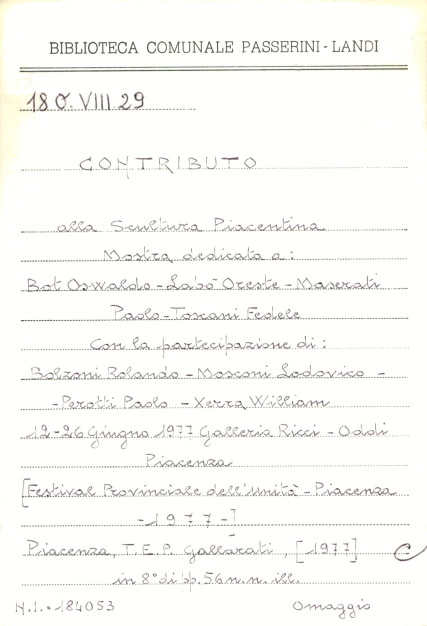 BIBLIOTECA COMUNALE PASSERINI-LANDI
18 O. VIII 29
CONTRIBUTO
alla Scultura Piacentina
Mostra dedicata a:
Bot Oswaldo - Labò Oreste - Maserati
Paolo - Toscani Fedele
Con la partecipazione di:
Bolzoni Rolando - Mosconi Lodovico -
- Perotti Paolo - Xerra William
12-26 Giugno 1977 Galleria Ricci - Oddi
Piacenza
[Festival Provinciale dell'Unità - Piacenza
- 1977 -]
Piacenza, T.E.P. Gallarati, [1977] C
in 8° di pp. 56 n.n. ill.
N.I. 184053 Omaggio